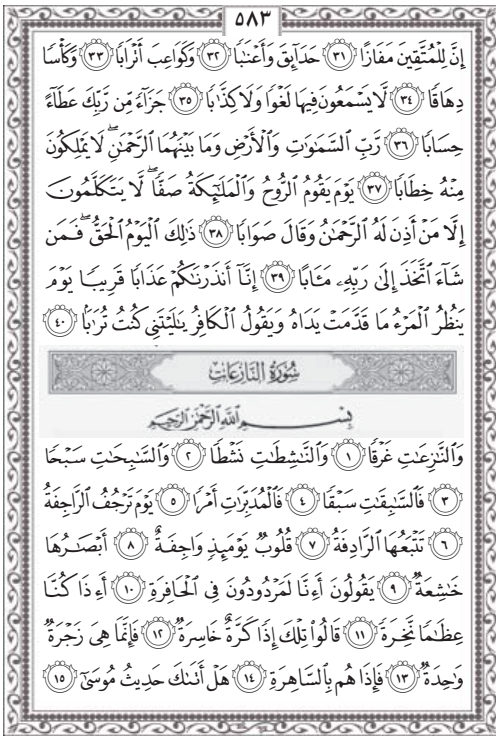 ٥٨٣
إِنَّ لِلْمُتَّقِينَ مَفَازًا ٣١ حَدَآئِقَ وَأَعْنَٰبًا ٣٢ وَكَوَاعِبَ أَتْرَابًا ٣٣ وَكَأْسًا
دِهَاقًا ٣٤ لَّا يَسْمَعُونَ فِيهَا لَغْوًا وَلَا كِذَّٰبًا ٣٥ جَزَآءً مِّن رَّبِّكَ عَطَآءً
حِسَابًا ٣٦ رَّبِّ ٱلسَّمَٰوَٰتِ وَٱلْأَرْضِ وَمَا بَيْنَهُمَا ٱلرَّحْمَٰنِ ۖ لَا يَمْلِكُونَ
مِنْهُ خِطَابًا ٣٧ يَوْمَ يَقُومُ ٱلرُّوحُ وَٱلْمَلَٰٓئِكَةُ صَفًّا ۖ لَّا يَتَكَلَّمُونَ
إِلَّا مَنْ أَذِنَ لَهُ ٱلرَّحْمَٰنُ وَقَالَ صَوَابًا ٣٨ ذَٰلِكَ ٱلْيَوْمُ ٱلْحَقُّ ۖ فَمَن
شَآءَ ٱتَّخَذَ إِلَىٰ رَبِّهِۦ مَـَٔابًا ٣٩ إِنَّآ أَنذَرْنَٰكُمْ عَذَابًا قَرِيبًا يَوْمَ
يَنظُرُ ٱلْمَرْءُ مَا قَدَّمَتْ يَدَاهُ وَيَقُولُ ٱلْكَافِرُ يَٰلَيْتَنِى كُنتُ تُرَٰبًۢا ٤٠
سُورَةُ النَّازِعَاتِ
بِسْمِ ٱللَّهِ ٱلرَّحْمَٰنِ ٱلرَّحِيمِ
وَٱلنَّٰزِعَٰتِ غَرْقًا ١ وَٱلنَّٰشِطَٰتِ نَشْطًا ٢ وَٱلسَّٰبِحَٰتِ سَبْحًا
٣ فَٱلسَّٰبِقَٰتِ سَبْقًا ٤ فَٱلْمُدَبِّرَٰتِ أَمْرًا ٥ يَوْمَ تَرْجُفُ ٱلرَّاجِفَةُ
٦ تَتْبَعُهَا ٱلرَّادِفَةُ ٧ قُلُوبٌ يَوْمَئِذٍ وَاجِفَةٌ ٨ أَبْصَٰرُهَا
خَٰشِعَةٌ ٩ يَقُولُونَ أَءِنَّا لَمَرْدُودُونَ فِى ٱلْحَافِرَةِ ١٠ أَءِذَا كُنَّا
عِظَٰمًا نَّخِرَةً ١١ قَالُوا۟ تِلْكَ إِذًا كَرَّةٌ خَاسِرَةٌ ١٢ فَإِنَّمَا هِىَ زَجْرَةٌ
وَٰحِدَةٌ ١٣ فَإِذَا هُم بِٱلسَّاهِرَةِ ١٤ هَلْ أَتَىٰكَ حَدِيثُ مُوسَىٰٓ ١٥